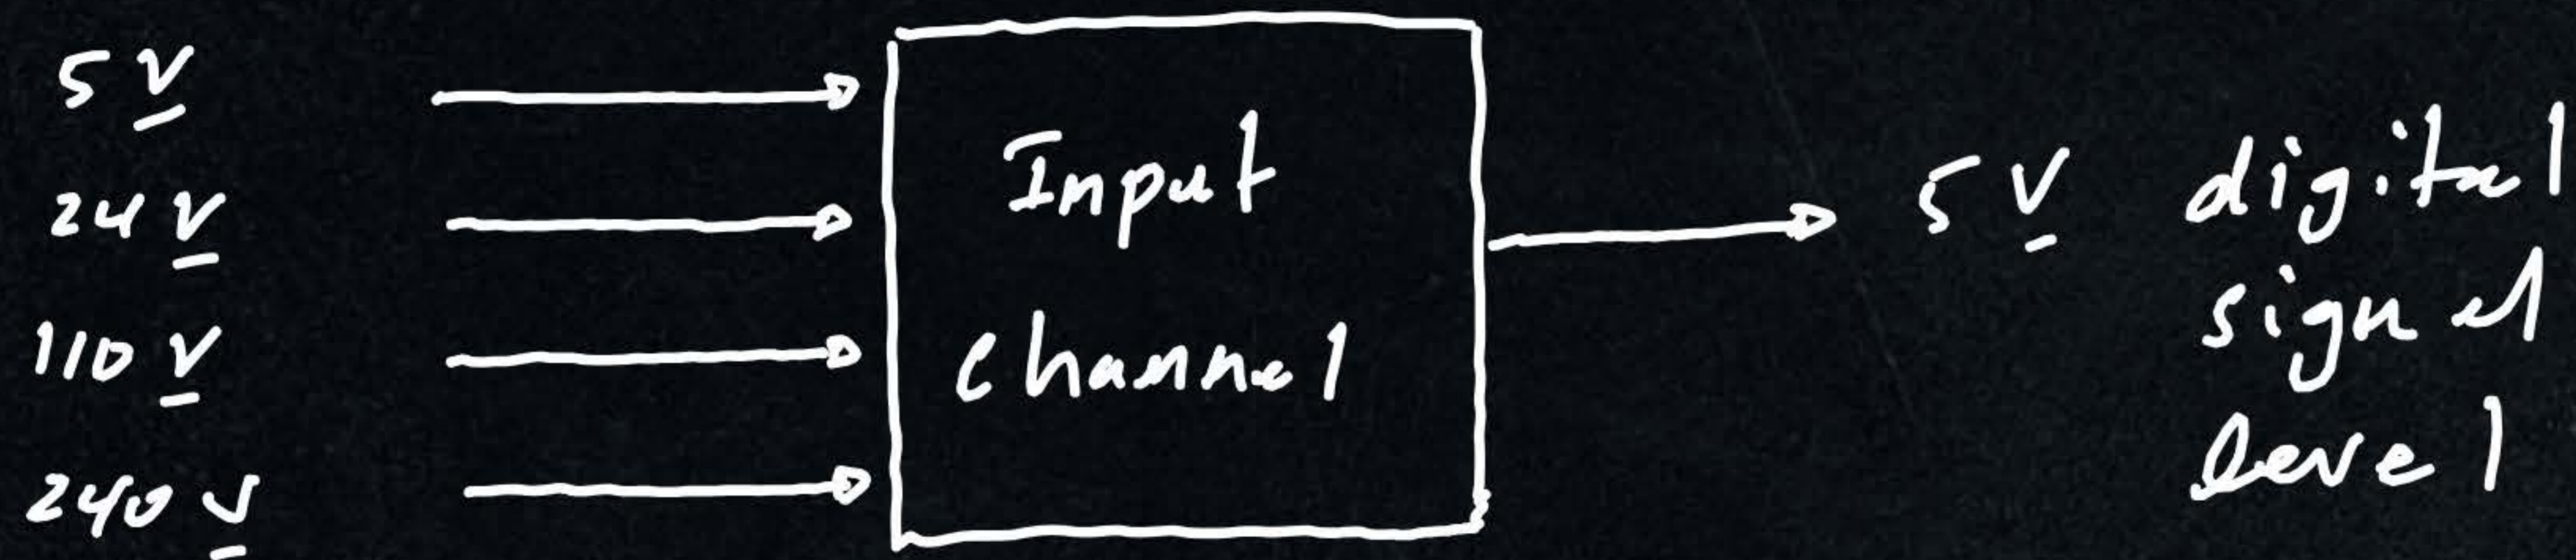 5 V
24 V
110 V
240 V
Input
channel
5 V digital
signal
level